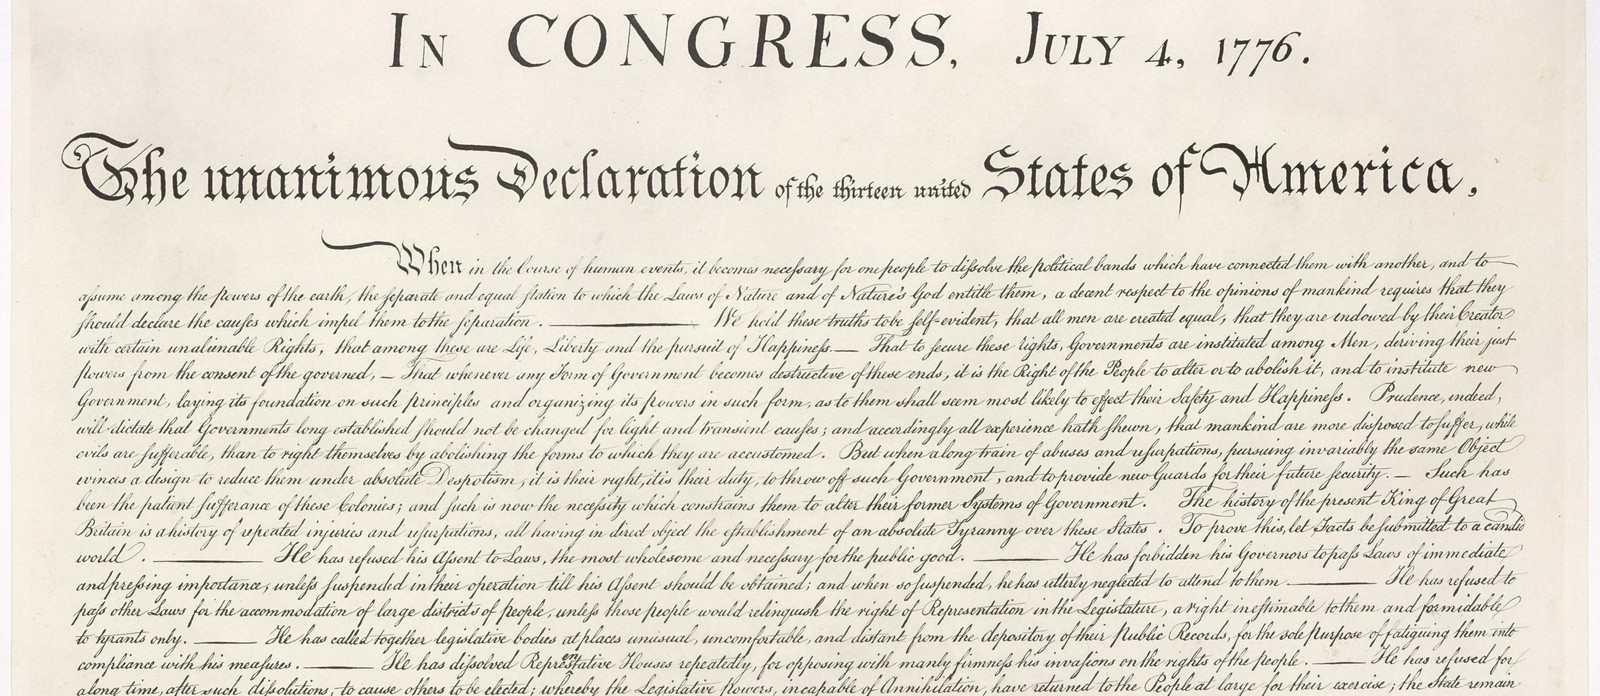 In CONGRESS, July 4, 1776.
The unanimous Declaration of the thirteen united States of America,
When in the Course of human events, it becomes necessary for one people to dissolve the political bands which have connected them with another, and to
assume among the powers of the earth, the separate and equal station to which the Laws of Nature and of Nature's God entitle them, a decent respect to the opinions of mankind requires that they
should declare the causes which impel them to the separation. ——— We hold these truths to be self-evident, that all men are created equal, that they are endowed by their Creator
with certain unalienable Rights, that among these are Life, Liberty and the pursuit of Happiness.— That to secure these rights, Governments are instituted among Men, deriving their just
powers from the consent of the governed, — That whenever any Form of Government becomes destructive of these ends, it is the Right of the People to alter or to abolish it, and to institute new
Government, laying its foundation on such principles and organizing its powers in such form, as to them shall seem most likely to effect their Safety and Happiness. Prudence, indeed,
will dictate that Governments long established should not be changed for light and transient causes; and accordingly all experience hath shewn, that mankind are more disposed to suffer, while
evils are sufferable, than to right themselves by abolishing the forms to which they are accustomed. But when a long train of abuses and usurpations, pursuing invariably the same Object
evinces a design to reduce them under absolute Despotism, it is their right, it is their duty, to throw off such Government, and to provide new Guards for their future security. — Such has
been the patient sufferance of these Colonies; and such is now the necessity which constrains them to alter their former Systems of Government. The history of the present King of Great
Britain is a history of repeated injuries and usurpations, all having in direct object the establishment of an absolute Tyranny over these States. To prove this, let Facts be submitted to a candid
world. ——— He has refused his Assent to Laws, the most wholesome and necessary for the public good. ——— He has forbidden his Governors to pass Laws of immediate
and pressing importance, unless suspended in their operation till his Assent should be obtained; and when so suspended, he has utterly neglected to attend to them. ——— He has refused to
pass other Laws for the accommodation of large districts of people, unless those people would relinquish the right of Representation in the Legislature, a right inestimable to them and formidable
to tyrants only. ——— He has called together legislative bodies at places unusual, uncomfortable, and distant from the depository of their Public Records, for the sole purpose of fatiguing them into
compliance with his measures. ——— He has dissolved Representative Houses repeatedly, for opposing with manly firmness his invasions on the rights of the people. ——— He has refused for
a long time, after such dissolutions, to cause others to be elected; whereby the Legislative powers, incapable of Annihilation, have returned to the People at large for their exercise; the State remain